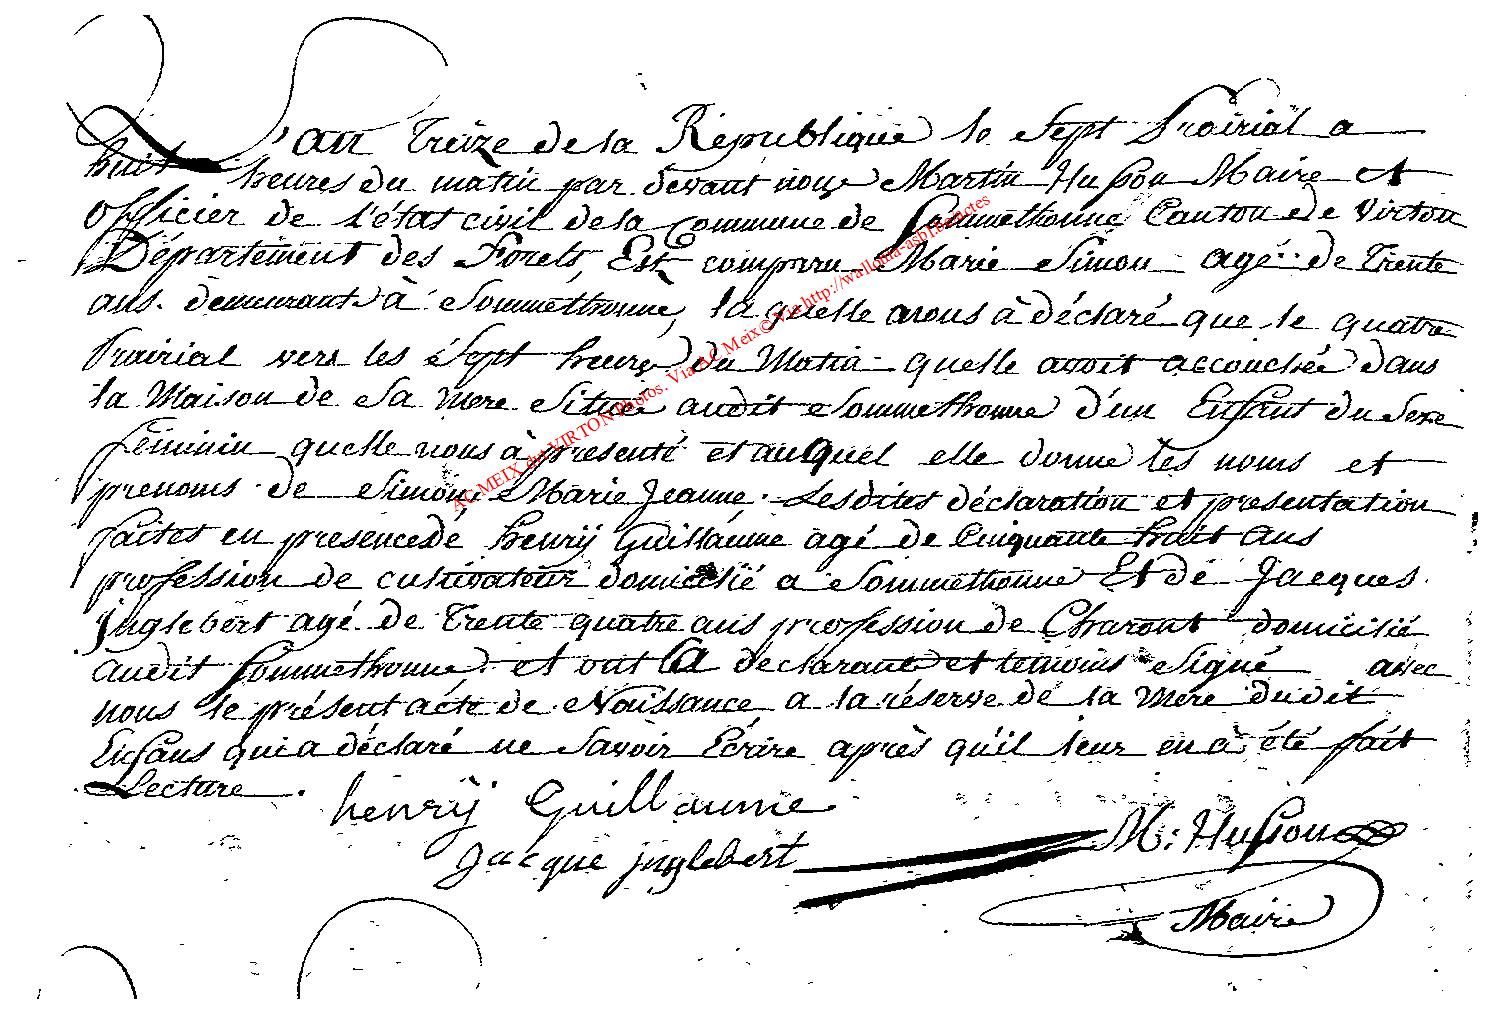 L'an Treize de la Republique le Sept Prairial a
huit heures du matin par devant nous Martin Husson Maire et
Officier de l'état civil de la Commune de Sommethonne Canton de Virton
Département des Forets, Est comparru Marie Simon agé de Trente
ans. demeurant à Sommethonne, la quelle avous à déclaré que le quatre
Prairial vers les Sept heures du Matin quelle avoit accouchée dans
la Maison de Sa mere Situé audit Sommethonne d'un Enfant du Sexe
feminin quelle nous à presenté et auquel elle donne les noms et
prenoms de Simon Marie Jeanne. Lesdites déclaration et presentation
faites en presence dé henrÿ Guillaume agé de Cinquante huit ans
profession de cultivateur domicilié a Sommethonne Et de Jacques
jnglebert agé de Trente quatre ans profession de Charont domicilié
audit Sommethonne, et ont la declarante et temoins Signé avec
nous le présent acte de Naissance a la réserve de la Mere dudit
Enfans qui a déclaré ne Savoir Ecrire après qu'il leur en à été fait
Lecture.
henrÿ Guillaume
M: Husson
Jacque jnglebert
Maire
AC MEIX dvt VIRTON Photos. Via AC Meix© Via http://wallonia-asbl.be/actes